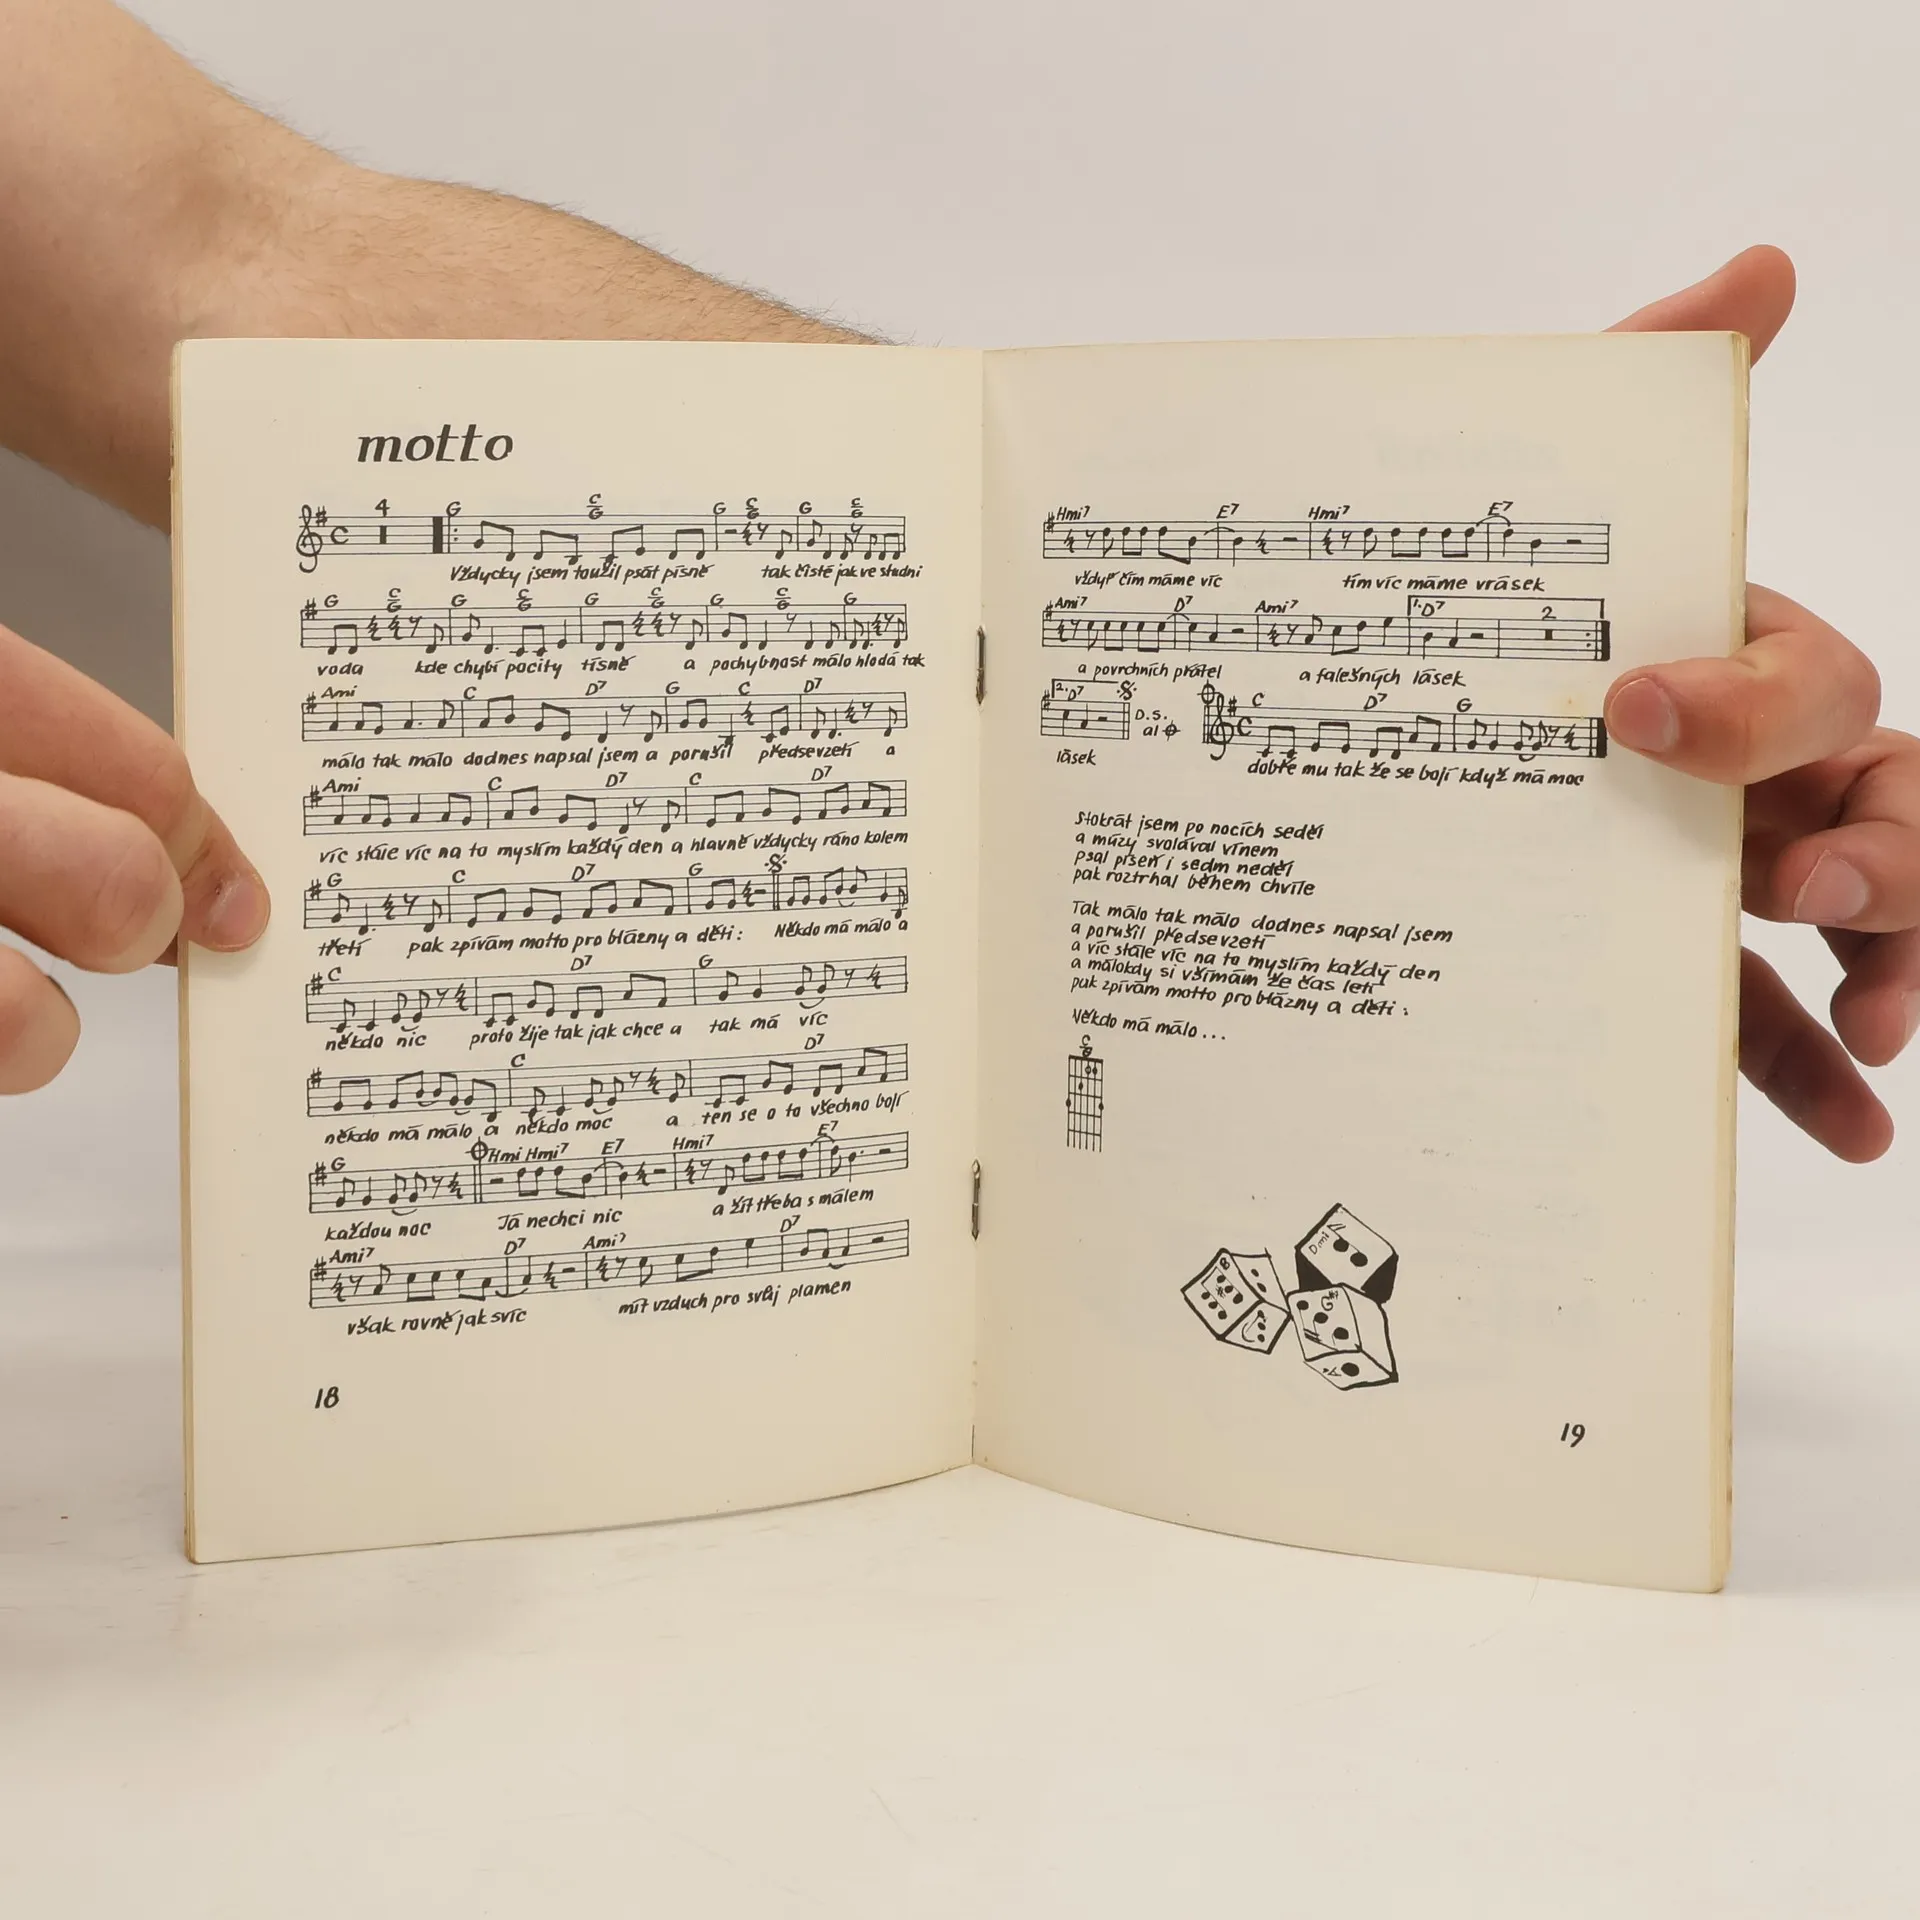 motto
4 G C/G G C/G G C/G
Vždycky jsem toužil psát písně tak čisté jak ve studni
G C/G G C/G G C/G G C/G G
voda kde chybí pocity tísně a pochybnost málo hlodá tak
Ami C D7 G C D7
málo tak málo dodnes napsal jsem a porušil předsevzetí a
Ami C D7 C D7
víc stále víc na to myslím každý den a hlavně vždycky ráno kolem
G C D7 G
třetí pak zpívám motto pro blázny a děti: Někdo má málo a
C D7 G
někdo nic proto žije tak jak chce a tak má víc
C D7
někdo má málo a někdo moc a ten se o to všechno bojí
G Hmi Hmi7 E7 Hmi7 E7
každou noc Já nechci nic a žít třeba s málem
Ami7 D7 Ami7 D7
však rovně jak svíc mít vzduch pro svůj plamen
18
Hmi7 E7 Hmi7 E7
vždyť čím máme víc tím víc máme vrásek
Ami7 D7 Ami7 1. D7 2
a povrchních přátel a falešných lásek
2. D7 D.S. al C C D7 G
lásek dobře mu tak že se bojí když má moc
stokrát jsem po nocích seděl
a múzy svolával vínem
psal píseň i sedm neděl
pak roztrhal během chvíle
Tak málo tak málo dodnes napsal jsem
a porušil předsevzetí
a víc stále víc na to myslím každý den
a málokdy si všímám že čas letí
pak zpívám motto pro blázny a děti:
Někdo má málo...
C/G
Dmi
19